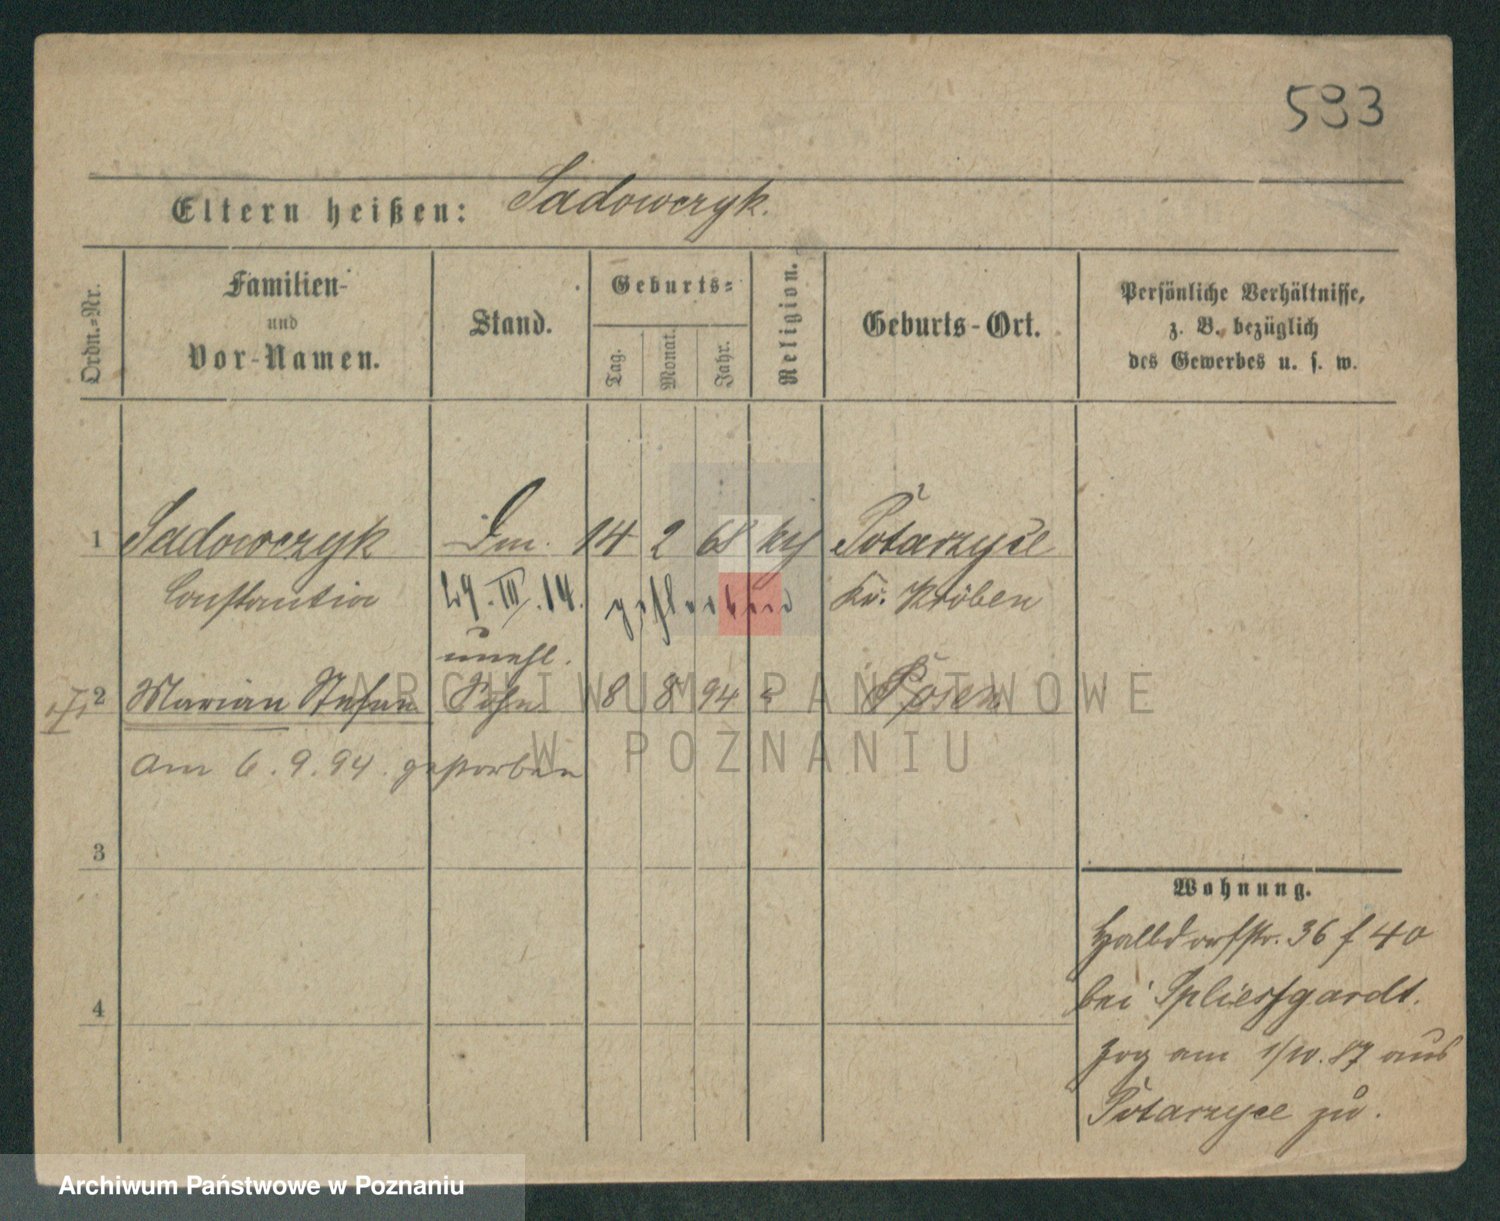 593
Eltern heißen: Sadowczyk.
Ordn.-Nr.
Familien-
und
Vor-Namen.
Stand.
Geburts-
Tag.
Monat.
Jahr.
Religion.
Geburts-Ort.
Persönliche Verhältnisse,
z. B. bezüglich
des Gewerbes u. s. w.
1 Sadowczyk 14 2 68 Potarzyce
Constantia 29. III. 14. gestorben Kr. Kröben
unehl.
2 Marian Stefan Sohn 8 8 94 Posen
am 6. 9. 94. gestorben
3
4
Wohnung.
Halbdorfstr. 36 f 40
bei Spliesgardt.
zog am 1/10. 87 aus
Potarzyce zu.
ARCHIWUM PAŃSTWOWE
W POZNANIU
Archiwum Państwowe w Poznaniu